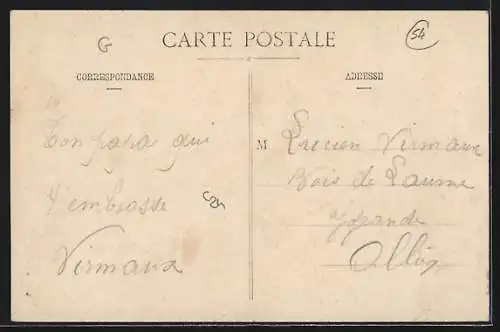 G
54
CARTE POSTALE
CORRESPONDANCE
ADRESSE
Ton papa qui
t'embrasse
Virmaux
M Lucien Virmaux
Bois de Laume